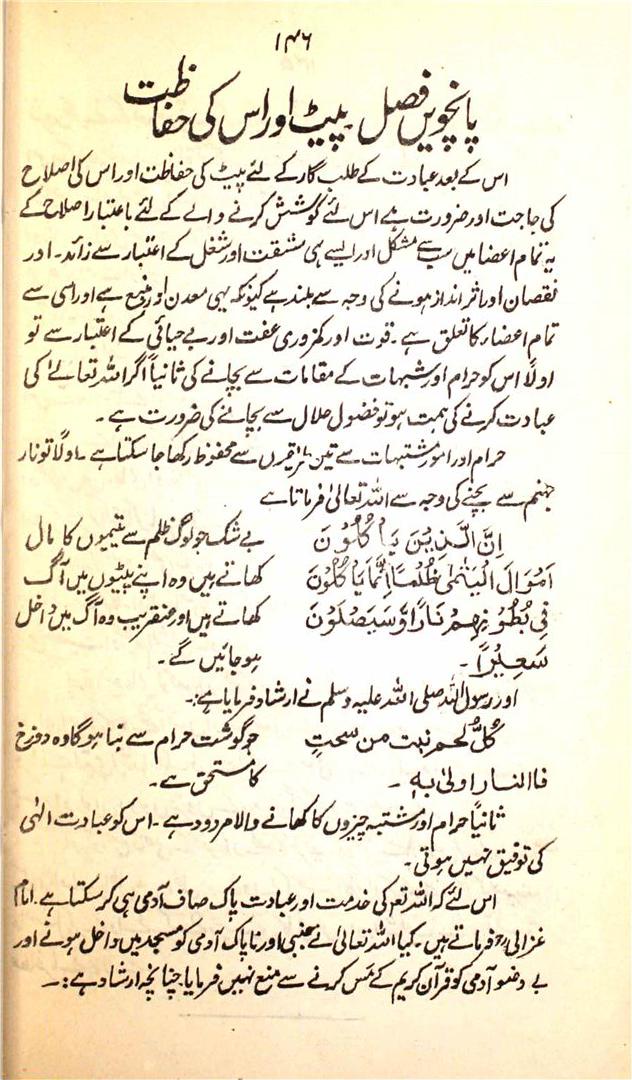 ۱۴۶
پانچویں فصل پیٹ اور اس کی حفاظت
اس کے بعد عبادت کے طلب گار کے لئے پیٹ کی حفاظت اور اس کی اصلاح
کی حاجت اور ضرورت ہے اس لئے کوشش کرنے والے کے لئے باعتبار اصلاح کے
یہ تمام اعضا میں سب سے مشکل اور ایسے ہی مشقت اور شغل کے اعتبار سے زائد۔ اور
نقصان اور اثر انداز ہونے کی وجہ سے بلند ہے کیونکہ یہی معدن اور منبع ہے اور اسی سے
تمام اعضاء کا تعلق ہے۔ قوت اور کمزوری عفت اور بے حیائی کے اعتبار سے تو
اولاً اس کو حرام اور شبہات کے مقامات سے بچانے کی ثانیاً اگر اللہ تعالےٰ کی
عبادت کرنے کی ہمت ہو تو فضول حلال سے بچانے کی ضرورت ہے۔
حرام اور امور مشتبہات سے تین طریقوں سے محفوظ رکھا جا سکتا ہے۔ اولًا تو نار
جہنم سے بچنے کی وجہ سے اللہ تعالیٰ فرماتا ہے
اِنَّ الَّذِيْنَ يَاْكُلُوْنَ بے شک جو لوگ ظلم سے یتیموں کا مال
اَمْوَالَ الْيَتٰمٰى ظُلْمًا اِنَّمَا يَاْكُلُوْنَ کھاتے ہیں وہ اپنے پیٹوں میں آگ
فِيْ بُطُوْنِهِمْ نَارًا وَّسَيَصْلَوْنَ کھاتے ہیں اور عنقریب وہ آگ میں داخل
سَعِيْرًا۔ ہو جائیں گے۔
اور رسول اللہ صلی اللہ علیہ وسلم نے ارشاد فرمایا ہے:۔
كُلُّ لحم نبت من سحتٍ جو گوشت حرام سے بنا ہو گا وہ دوزخ
فاالنار اولىٰ به ۔ کا مستحق ہے۔
ثانیاً حرام اور مشتبہ چیزوں کا کھانے والا مردود ہے۔ اس کو عبادت الٰہی
کی توفیق نہیں ہوتی۔
اس لئے کہ اللہ تعہ کی خدمت اور عبادت پاک صاف آدمی ہی کر سکتا ہے۔ امام
غزالیؒ فرماتے ہیں۔ کیا اللہ تعالیٰ نے جنبی اور ناپاک آدمی کو مسجد میں داخل ہونے اور
بے وضو آدمی کو قرآن کریم کے مَس کرنے سے منع نہیں فرمایا۔ چنانچہ ارشاد ہے:۔